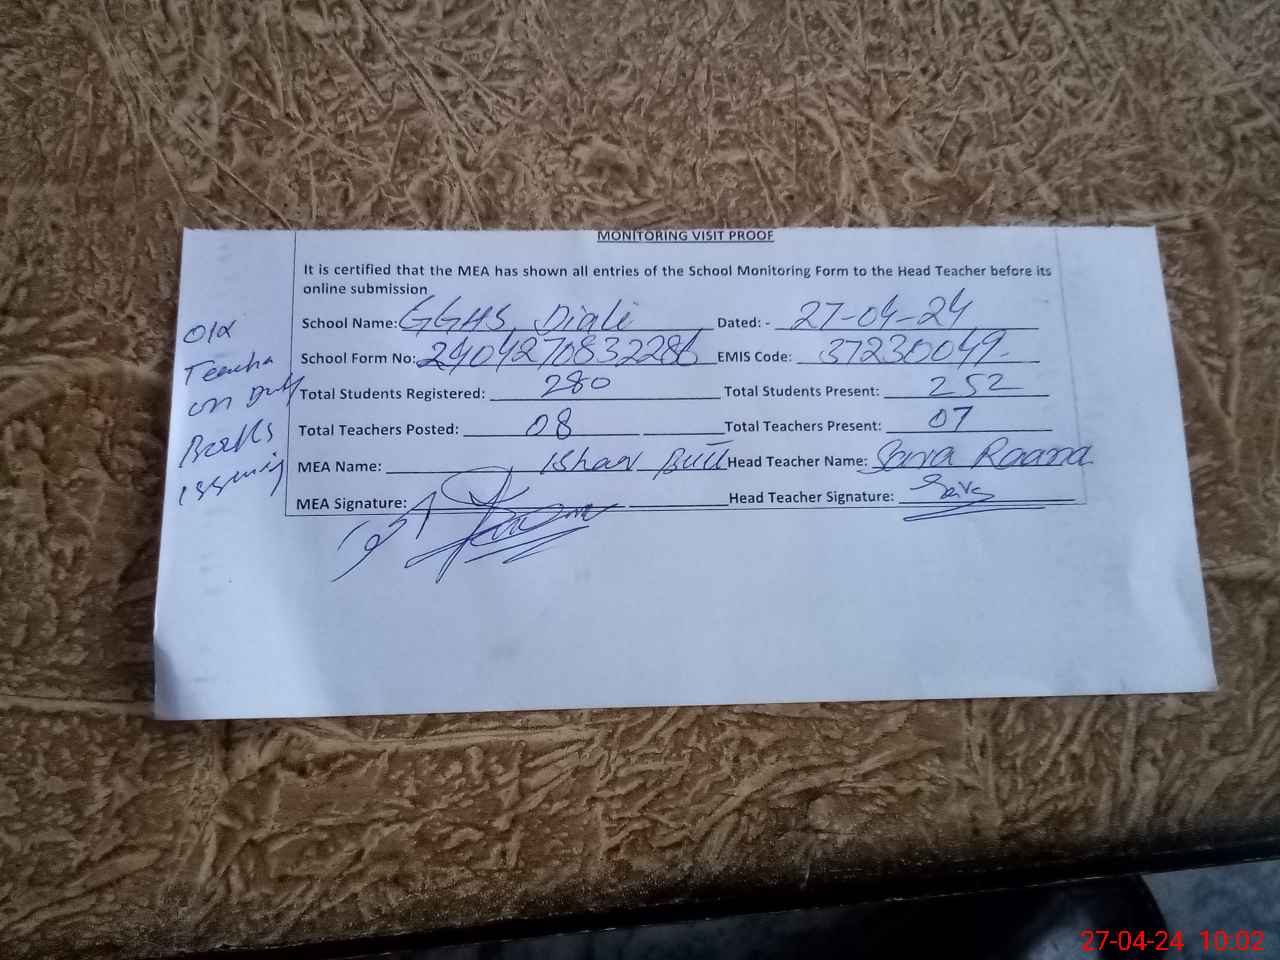 MONITORING VISIT PROOF
It is certified that the MEA has shown all entries of the School Monitoring Form to the Head Teacher before its
online submission
School Name: GGHS, Diali Dated: - 27-04-24
School Form No: 2404270832286 EMIS Code: 37230049
Total Students Registered: 280 Total Students Present: 252
Total Teachers Posted: 08 Total Teachers Present: 07
MEA Name: Butt Head Teacher Name: Sara Raana
MEA Signature: Head Teacher Signature:
01
Teacher
on Duty
Books
issuing
27-04-24 10:02